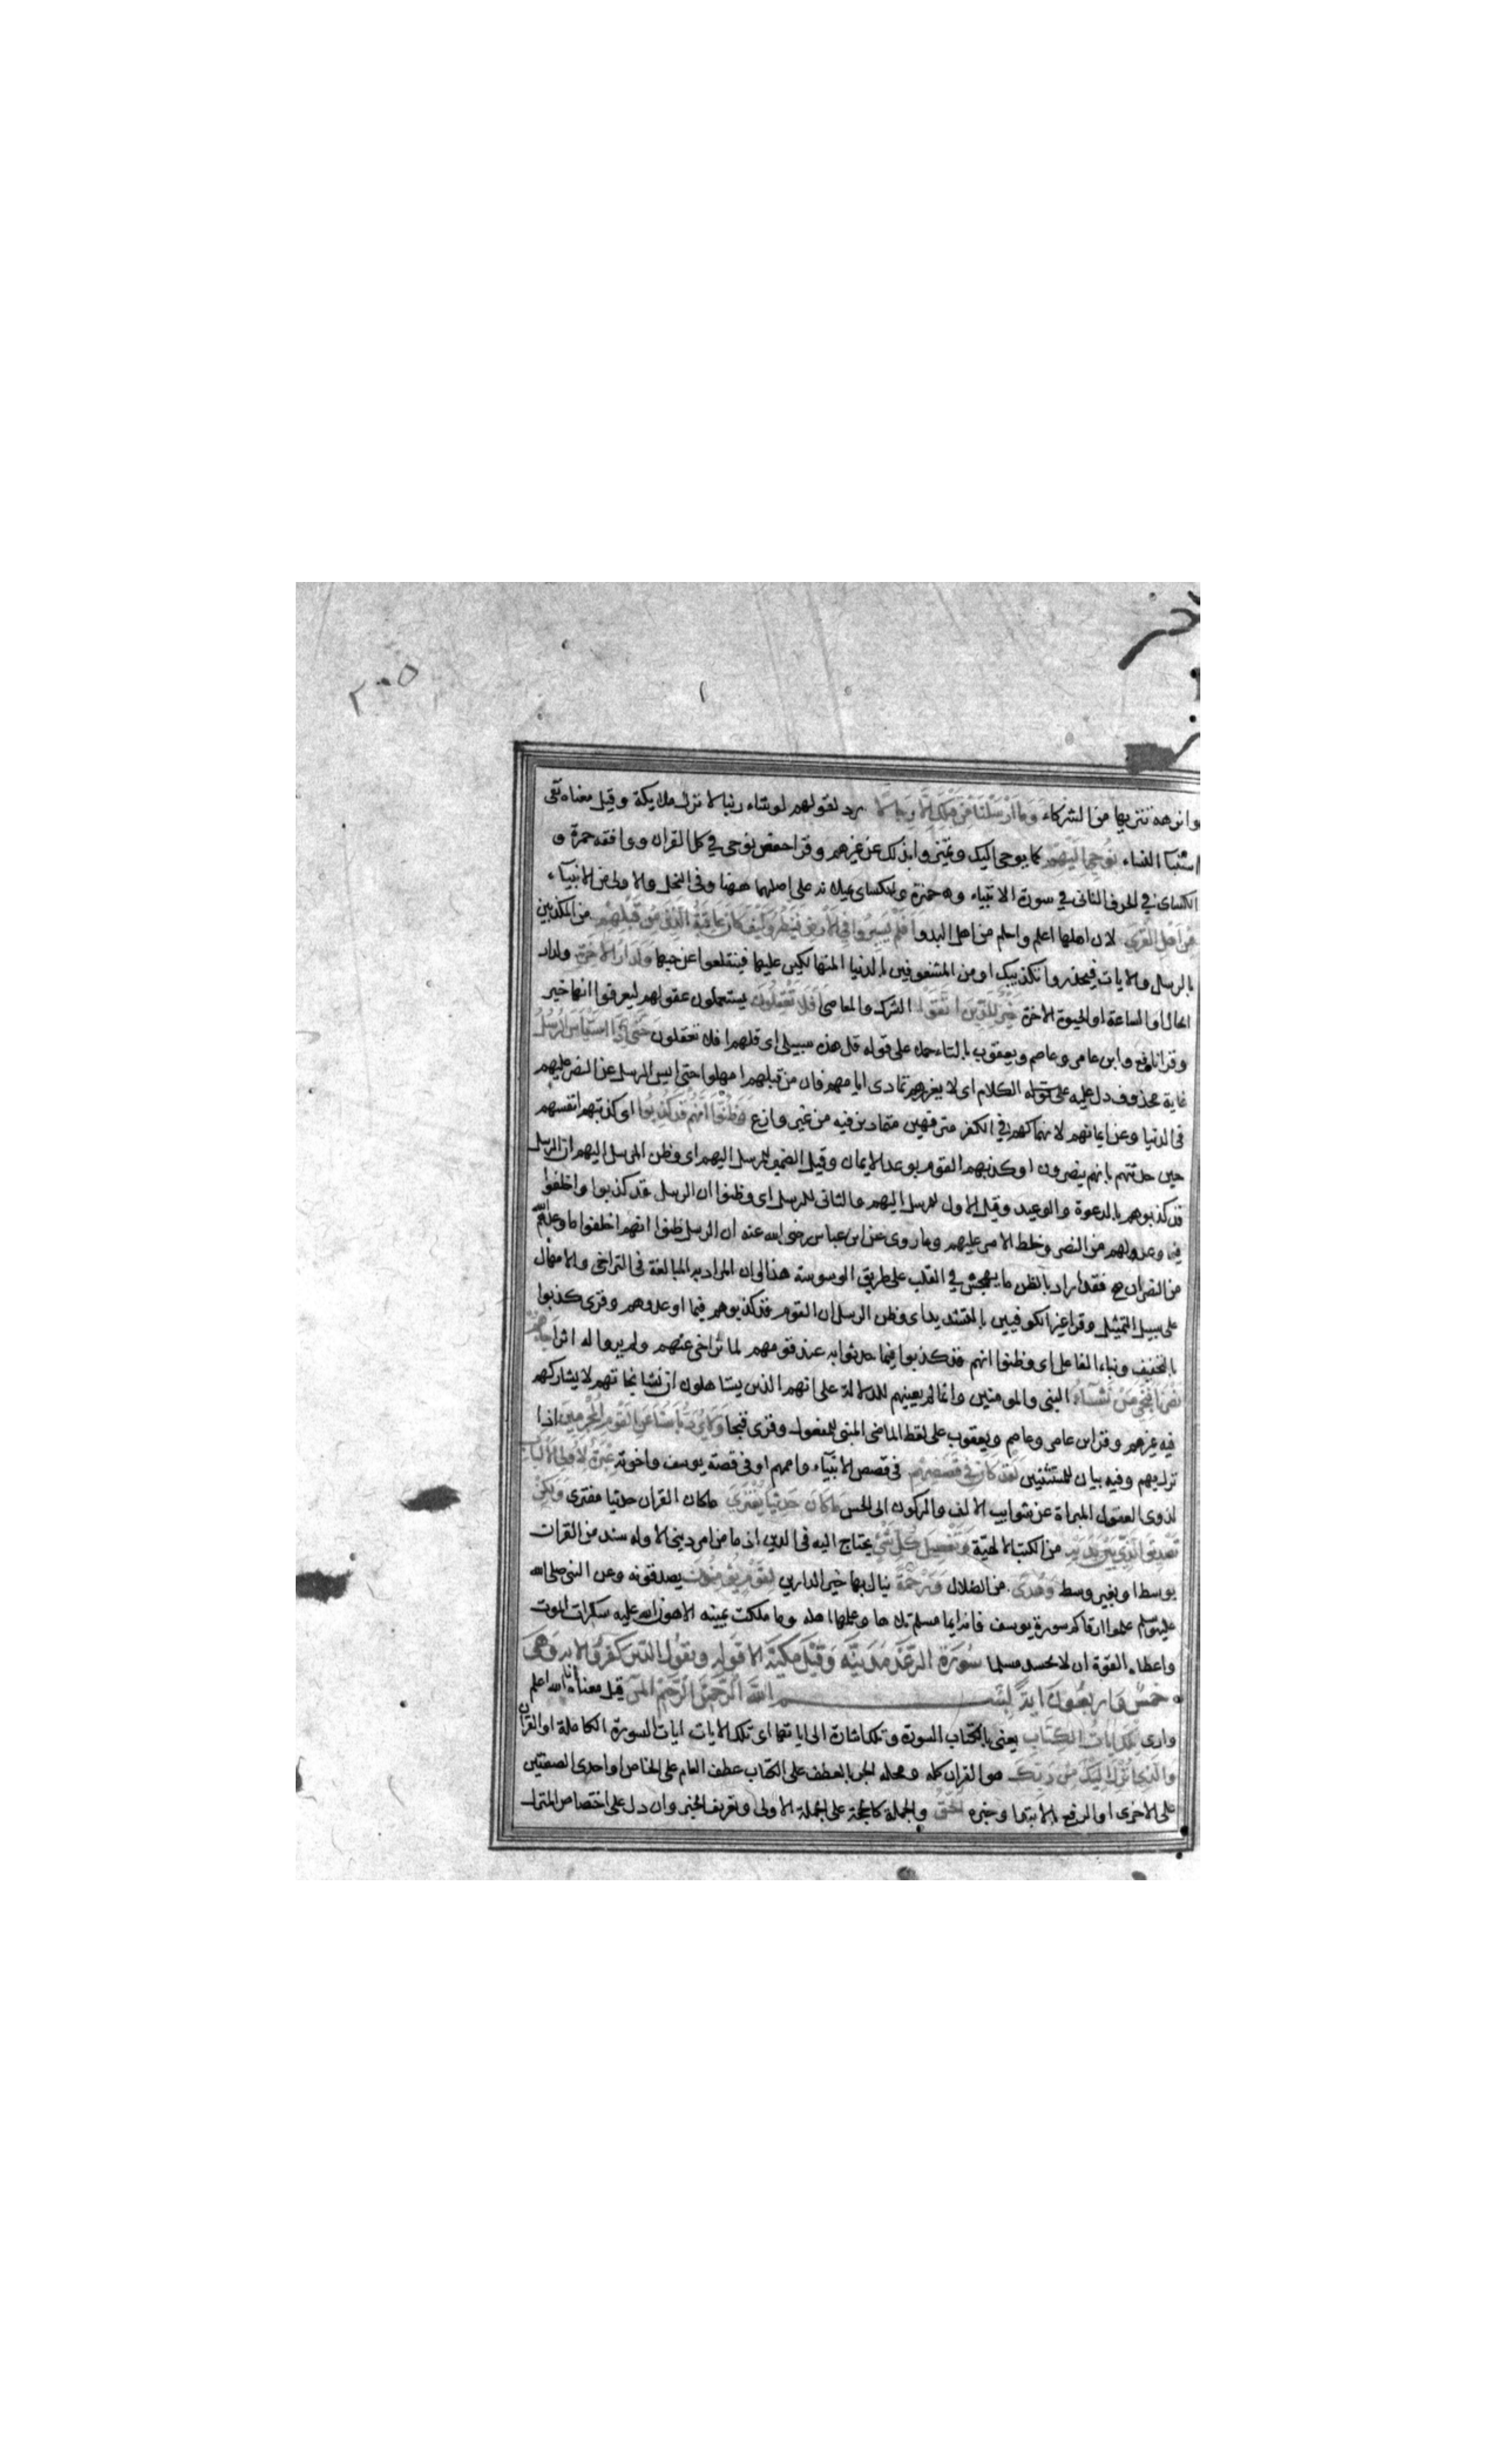 ٢٠٥
وانزهه تنزيها من الشركاء وما ارسلنا من قبلك الا رجالا رد لقولهم لو شاء ربنا لانزل ملايكة وقيل معناه نفى
استنبا النساء نوحى اليهم كما يوحى اليك وتميزوا بذلك عن غيرهم وقرا حفص نوحى في كل القران ووافقه حمزة و
الكسائ في الحرف الثانى في سورة الانبياء
من اهل القرى لان اهلها اعلم واحلم من اهل البدو افلم يسيروا في الارض فينظروا كيف كان عاقبة الذين من قبلهم من المكذبين
بالرسل والايات فيحذروا تكذيبك او من المشغوفين بالدنيا المتهالكين عليها فينقلعوا عن حبها ولدار الاخرة ولدار
الحال او الساعة او الحيوة الاخرة خير للذين اتقوا الشرك والمعاصى افلا تعقلون يستعملون عقولهم ليعرفوا انها خير
وقرا نافع وابن عامر وعاصم ويعقوب بالتاء حملا على قوله قل هذه سبيلى اى قل لهم افلا تعقلون حتى اذا استيأس الرسل
غاية محذوف دل عليه الكلام اى لا يغررهم تمادى ايامهم فان من قبلهم امهلوا حتى ايس الرسل عن النصر عليهم
في الدنيا وعن ايمانهم لانهماكهم في الكفر مترفهين متمادين فيه من غير وازع وظنوا انهم قد كذبوا اى كذبتهم انفسهم
حين حدثتهم بانهم ينصرون او كذبهم القوم بوعد الايمان وقيل الضمير للرسل اليهم اى وظن المرسل اليهم ان الرسل
قد كذبوهم بالدعوة والوعيد وقيل الاول للرسل اليهم والثانى للرسل اى وظنوا ان الرسل قد كذبوا واخلفوا
فيما وعد لهم من النصر وخلط الامر عليهم وما روى عن ابن عباس رضى الله عنه ان الرسل ظنوا انهم اخلفوا ما وعدهم الله
من النصر ان صح فقد اراد بالظن ما يهجس في القلب على طريق الوسوسة هذا وان المراد به المبالغة في التراخى والامهال
على سبيل التمثيل وقرا غير الكوفيين بالتشديد اى وظن الرسل ان القوم قد كذبوهم فيما اوعدوهم وقرى كذبوا
بالتخفيف وبناء الفاعل اى وظنوا انهم قد كذبوا فيما حدثوا به عند قومهم لما تراخى عنهم ولم يروا له اثرا جاءهم
نصرنا فنجى من نشاء النبى والمومنين وانما لم يعينهم للدلالة على انهم الذين يستاهلون ان نشا نجاتهم لا يشاركهم
فيه غيرهم وقرا ابن عامر وعاصم ويعقوب على لفظ الماضى المبنى للمفعول وقرى فنجا ولا يرد بأسنا عن القوم المجرمين اذا
نزل بهم وفيه بيان للمستثنين لقد كان في قصصهم في قصص الانبياء واممهم او في قصة يوسف واخوته عبرة لاولى الالباب
لذوى العقول المبراة عن شوايب الالف والركون الى الحس ما كان حديثا يفترى ما كان القران حديثا مفترى ولكن
تصديق الذى بين يديه من الكتب الالهية وتفصيل كل شئ يحتاج اليه في الدين اذ ما من امر دينى الا وله سند من القرات
بوسط او بغير وسط وهدى من الضلال ورحمة ينال بها خير الدارين لقوم يؤمنون يصدقونه وعن النبى صلى الله
عليه وسلم علموا ارقاكم سورة يوسف فانه ايما مسلم تلاها وعلمها اهله وما ملكت يمينه الا هون الله عليه سكرات الموت
واعطاه القوة ان لا يحسد مسلما سورة الرعد مدينة وقيل مكية الا قوله ويقول الذين كفروا الاية وهى
خمس واربعون اية بسم الله الرحمن الرحيم المر قيل معناه انا الله اعلم
وارى تلك ايات الكتاب يعنى بالكتاب السورة وتلك اشارة الى اياتها اى تلك الايات ايات السورة الكاملة او القران
والذى انزل اليك من ربك هو القران كله ومحله الجر بالعطف على الكتاب عطف العام على الخاص او احدى الصفتين
على الاخرى او الرفع بالابتدا وخبره الحق والجملة كالحجة على الجملة الاولى وتعريف الخبر وان دل على اختصاص المنزل